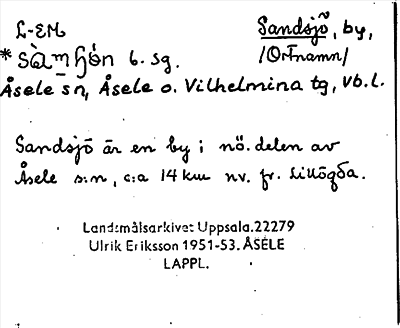 L-EM Sandsjö, by,
b. sg. /Ortnamn/
Åsele sn, Åsele o. Vilhelmina tg, Vb.l.
Sandsjö är en by i nö. delen av
Åsele s:n, c:a 14 km nv. fr. Lillögda.
Landsmålsarkivet Uppsala.22279
Ulrik Eriksson 1951-53. ÅSELE
LAPPL.